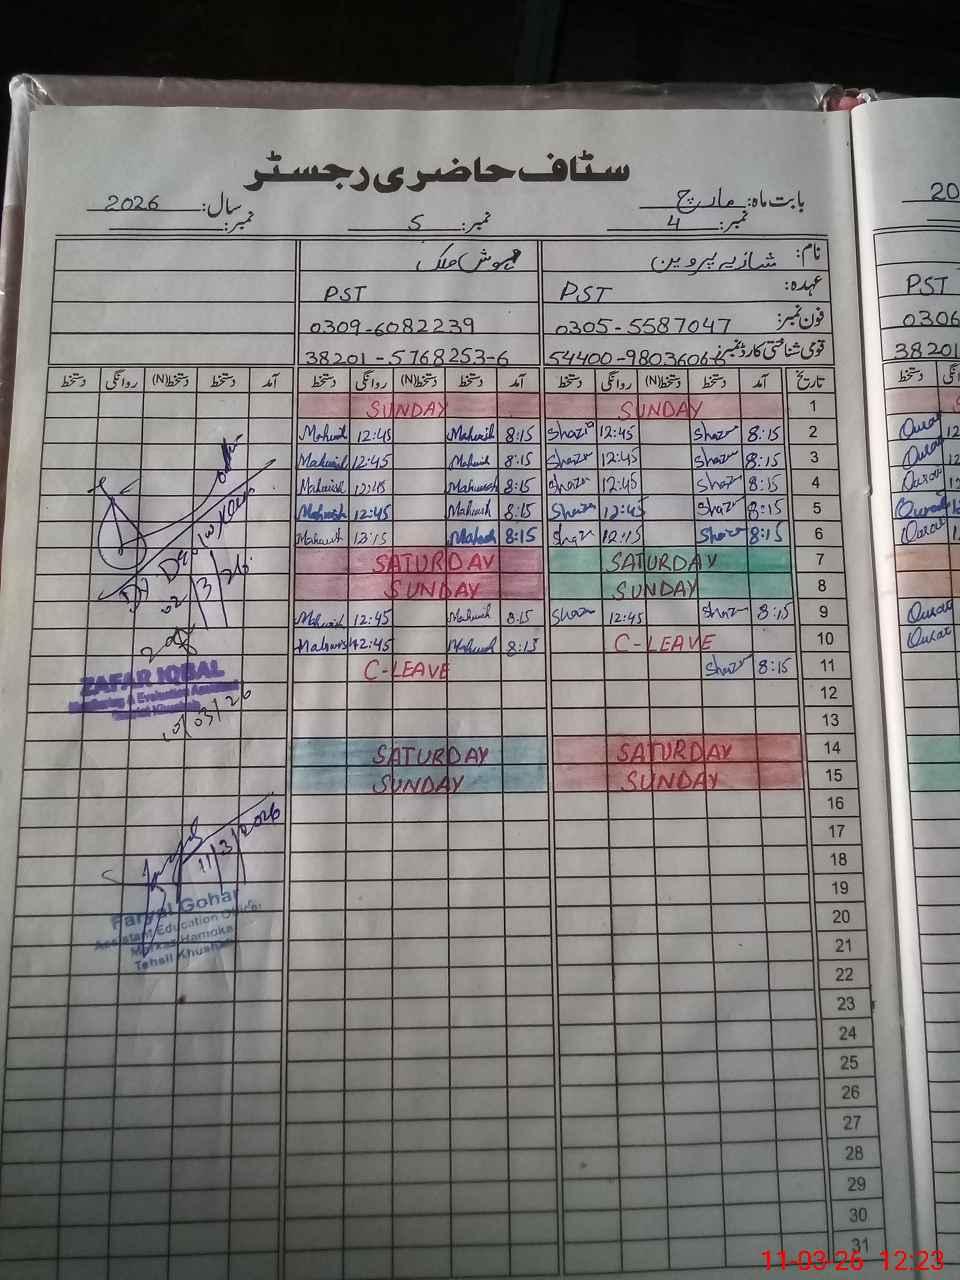 سٹاف حاضری رجسٹر
بابت ماہ: مارچ سال: 2026
نمبر: 4 نمبر: 5 نمبر:
نام: شازیہ پروین مہوش ملک
عہدہ: PST PST PST
فون نمبر: 0305-5587047 0309-6082239 0306
قومی شناختی کارڈ نمبر: 38201-5768253-6 38201
تاریخ آمد دستخط دستخط(N) روانگی دستخط آمد دستخط دستخط(N) روانگی دستخط آمد دستخط دستخط(N) روانگی دستخط
1 SUNDAY SUNDAY
2 8:15 Shazi 12:45 Shazi 8:15 Mahwish 12:45 Mahwish
3 8:15 Shazi 12:45 Shazi 8:15 Mahwish 12:45 Mahwish
4 8:15 Shazi 12:45 Shazi 8:15 Mahwish 12:45 Mahwish
5 8:15 Shazi 12:45 Shazi 8:15 Mahwish 12:45 Mahwish
6 8:15 Shazi 12:15 Shazi 8:15 Mahwish Mahwish
7 SATURDAY SATURDAY
8 SUNDAY SUNDAY
9 8:15 Shazi 12:45 Shazi 8:15 Mahwish 12:45 Mahwish
10 C-LEAVE 8:15 Mahwish 12:45 Mahwish
11 8:15 Shazi C-LEAVE
12
13
14 SATURDAY SATURDAY
15 SUNDAY SUNDAY
16
17
18
19
20
21
22
23
24
25
26
27
28
29
30
31
02/3/26
ZAFAR IQBAL
Monitoring & Evaluation Assistant
10/03/26
11/3/2026
Faryal Gohar
Assistant Education Officer
Markaz Hamoka
Tehsil Khushab
11-03-26 12:23